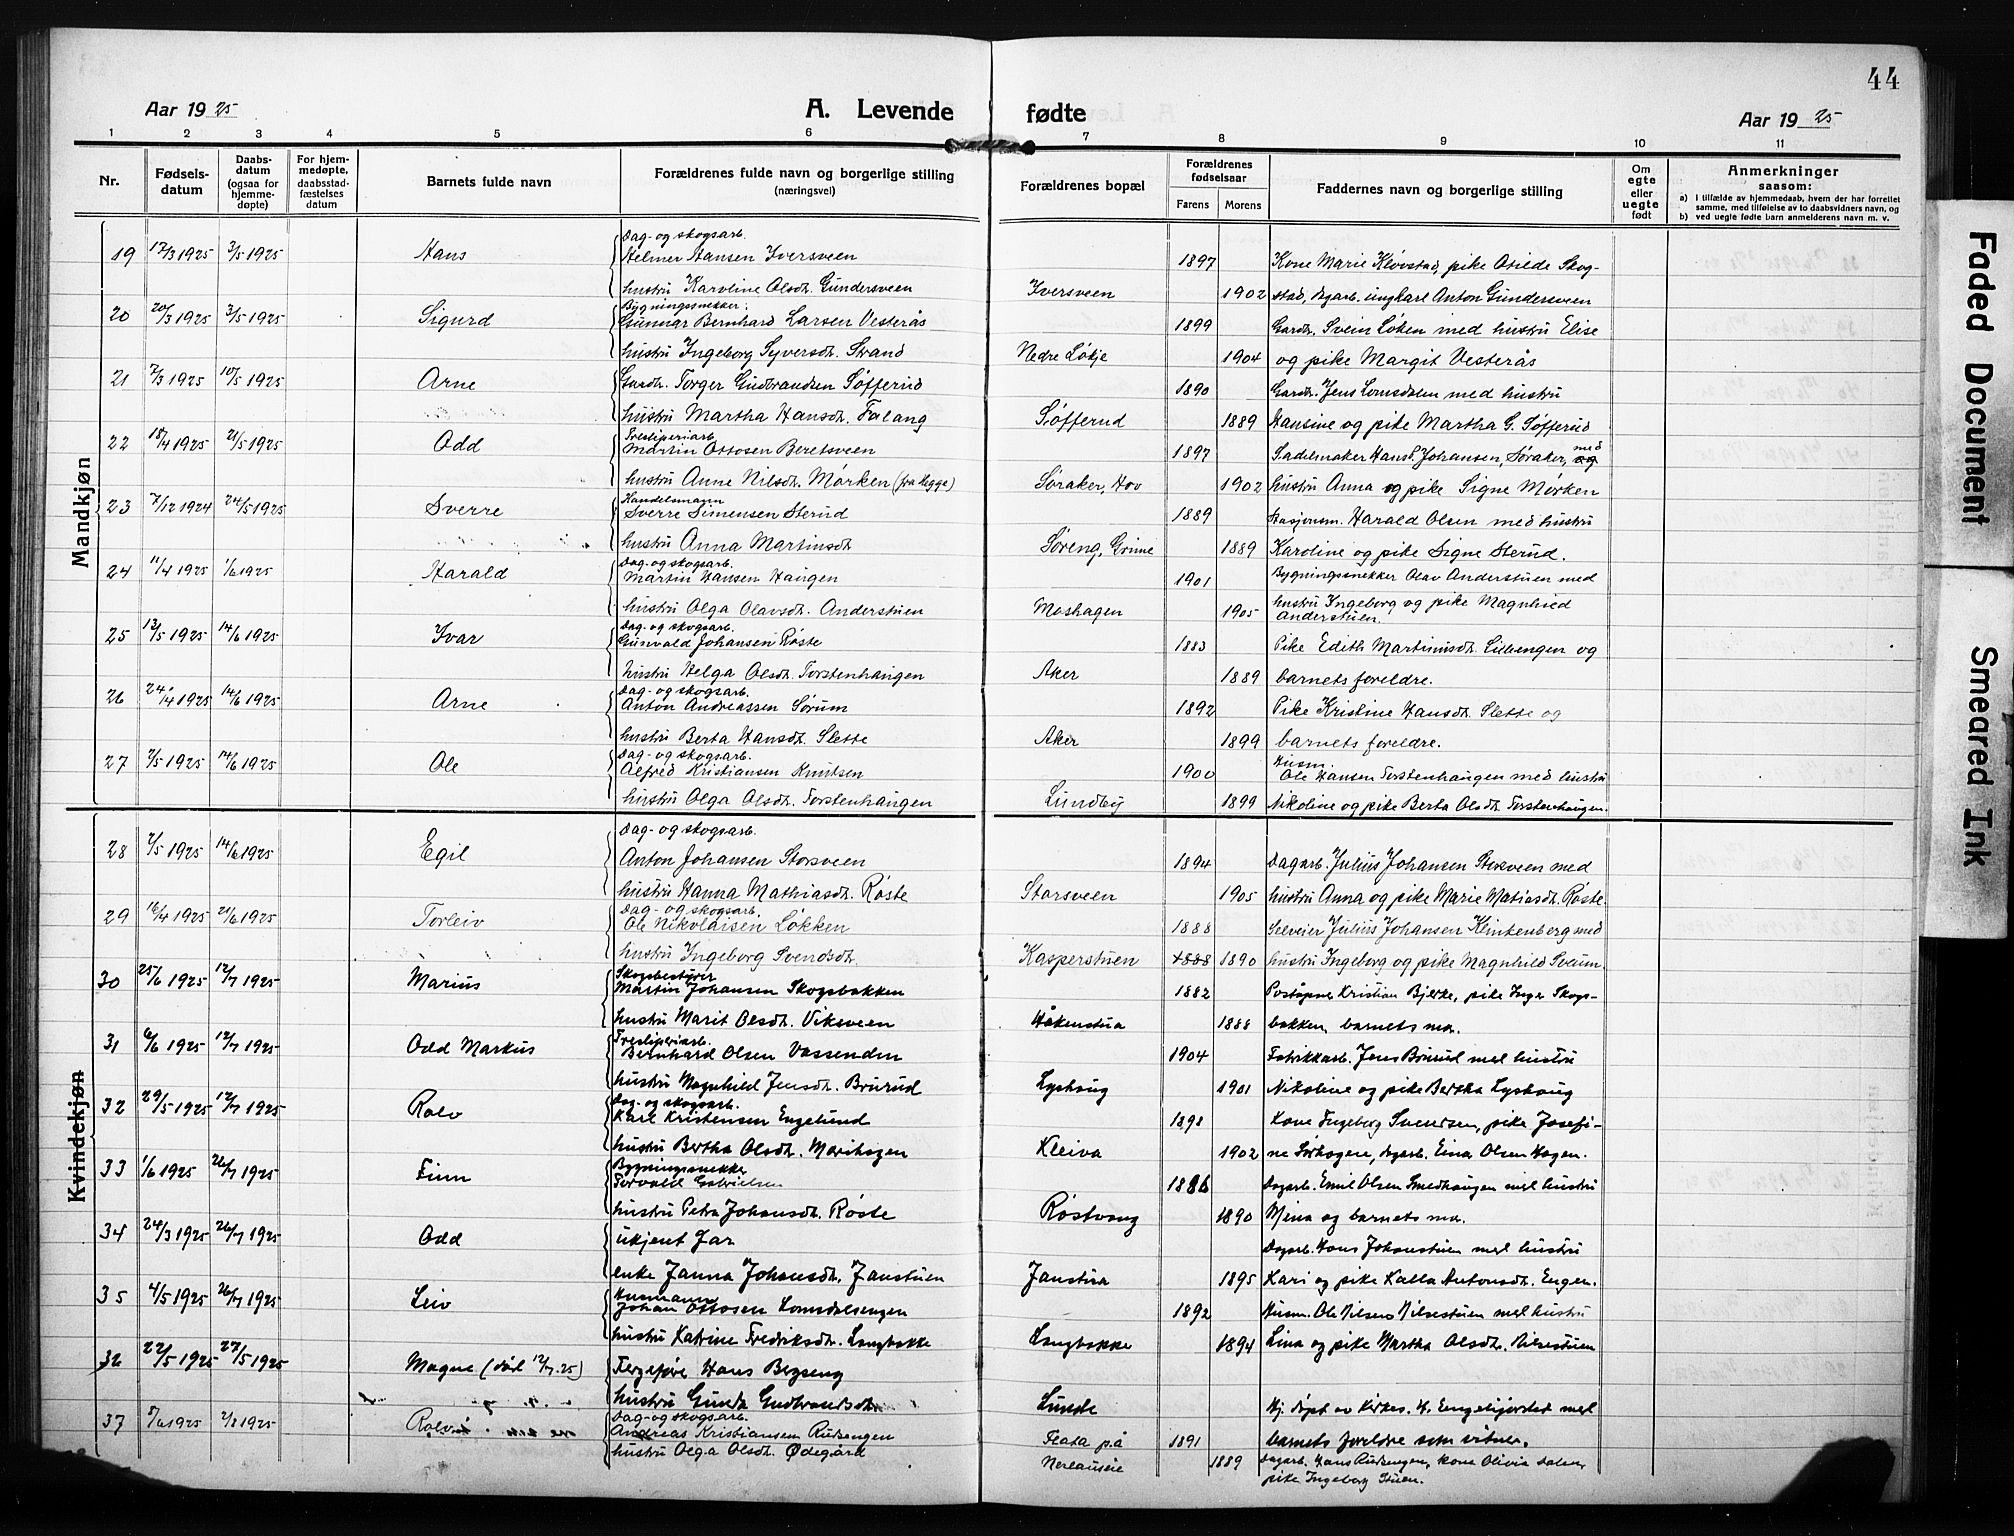 44
Aar 1925 A. Levende fødte Aar 1925
1 2 3 4 5 6 7 8 9 10 11
Nr. Fødselsdatum Daabsdatum (ogsaa for hjemmedøpte) For hjemmedøpte, daabsstadfæstelses datum Barnets fulde navn Forældrenes fulde navn og borgerlige stilling (næringsvei) Forældrenes bopæl Forældrenes fødselsaar Farens Morens Faddernes navn og borgerlige stilling Om egte eller uegte født Anmerkninger saasom:
a) I tilfælde av hjemmedaab, hvem der har forrettet samme, med tilføielse av to daabsvidners navn, og
b) ved uegte fødte barn anmelderens navn m. v.
Mandkjøn
Dag- og skogsarb.
19 17/3 1925 3/5 1925 Hans Helmer Hansen Iversveen 1897 Kone Marie Kløvstad, pike Otilde Skog-
hustru Karoline Olsdt. Gundersveen Iversveen 1902 stad, dagarb. ungkarl Anton Gundersveen
Bygningssnekker
20 20/3 1925 3/5 1925 Sigurd Gunnar Bernhard Larsen Vesterås 1899 Gardbr. Svein Løken med hustru Elise
hustru Ingeborg Syversdt. Strand Nedre Løkje 1904 og pike Margit Vesterås
21 7/3 1925 10/5 1925 Arne Gardbr. Torger Gudbrandsen Søfferud 1890 Gardbr. Jens Lomsdalen med hustru
hustru Martha Hansdt. Falang Søfferud 1889 Hansine og pike Martha G. Søfferud
Tresliperiarb.
22 18/4 1925 21/5 1925 Odd Martin Ottosen Beretsveen 1897 Sadelmaker Hans Johansen, Søraker, med
hustru Anne Nilsdt. Mørken (fra Hegge) Søraker, Hov 1902 hustru Anna og pike Signe Mørken
Handelsmann
23 7/12 1924 24/5 1925 Sverre Sverre Simensen Sterud 1889 Stasjonsm. Harald Olsen med hustru
hustru Anna Martinsdt. Søreng, Grime 1889 Karoline og pike Signe Sterud.
Dag- og skogsarb.
24 11/4 1925 1/6 1925 Harald Martin Hansen Haugen 1901 Bygningssnekker Olav Anderstuen med
hustru Olga Olavsdt. Anderstuen Moshagen 1905 hustru Ingeborg og pike Magnhild Anderstuen.
Dag- og skogsarb.
25 13/5 1925 14/6 1925 Ivar Gunvald Johansen Røste 1883 Pike Edith Martinusdt. Lillengen og
hustru Helga Olsdt. Torstenhaugen Aker 1889 barnets foreldre.
Dag- og skogsarb.
26 24/4 1925 14/6 1925 Arne Anton Andreassen Sørum 1892 Pike Kristine Hansdt. Slette og
hustru Berta Hansdt. Slette Aker 1899 barnets foreldre.
Dag- og skogsarb. Husm.
27 7/5 1925 14/6 1925 Ole Alfred Kristiansen Knutsen 1900 Ole Hansen Torstenhaugen med hustru
hustru Olga Olsdt. Torstenhaugen Lundby 1899 Nikoline og pike Berta Olsdt. Torstenhaugen.
Kvindekjøn
Dag- og skogsarb.
28 7/5 1925 14/6 1925 Egil Anton Johansen Storsveen 1894 Dagarb. Julius Johansen Storsveen med
hustru Hanna Mathiasdt. Røste Storsveen 1905 hustru Anna og pike Marie Matiasdt. Røste
Dag- og skogsarb.
29 16/4 1925 21/6 1925 Torleiv Ole Nikolaisen Løkken 1888 Selveier Julius Johansen Klinkenberg med
hustru Ingeborg Svendsdt. Kasperstuen 1888 1890 hustru Ingeborg og pike Magnhild Sveum.
Skogbestyrer
30 25/6 1925 12/7 1925 Marius Martin Johansen Skogsbakken 1882 Poståpner Kristian Bjerke, pike Inger Skogs-
hustru Marit Olsdt. Viksveen Håkenstua 1888 bakken, barnets mor.
Tresliperiarb.
31 6/6 1925 12/7 1925 Odd Markus Bernhard Olsen Vassenden 1904 Fabrikkarb. Jens Brurud med hustru
hustru Magnhild Jensdt. Brurud Lyshaug 1901 Nikoline og pike Bertha Lyshaug
Dag- og skogsarb.
32 29/5 1925 12/7 1925 Rolv Karl Kristensen Engelund 1898 Kone Ingeborg Svendsen, pike Josefi-
hustru Bertha Olsdt. Marihagen Kleiva 1902 ne Sørhagen, dagarb. Einar Olsen Hagen.
Bygningssnekker
33 1/6 1925 26/7 1925 Finn Torvald Gabrielsen 1886 Dagarb. Emil Olsen Smedhaugen med hustru
hustru Petra Johansdt. Røste Røstvang 1890 Mina og barnets mor.
34 24/3 1925 26/7 1925 Odd ukjent far Dagarb. Hans Johanstuen med hustru
enke Janna Johansdt. Janstuen Janstua 1895 Kari og pike Kalla Antonsdt. Engen.
Husmann
35 4/5 1925 26/7 1925 Leiv Johan Ottosen Lomsdalsengen 1892 Husm. Ole Nilsen Nilsestuen med hustru
hustru Katrine Fredriksdt. Langbakke Langbakke 1894 Lina og pike Martha Olsdt. Nilsestuen
36 22/5 1925 27/5 1925 Magne (død 12/7.25) Fergefører Hans Bergseng
hustru Gunda Gudbrandsdt. Lunde Hj. døpt av kirkes. H. Engebjørstad med
Dag- og skogsarb.
37 5/6 1925 2/8 1925 Rolv Andreas Kristiansen Rudsengen Flata på 1891 barnets foreldre som vitner.
hustru Olga Olsdt. Ødegård 1889 Dagarb. Hans Rudsengen, kone Olivia Dalen,
pike Ingeborg Stuen.
Faded Document
Smeared Ink